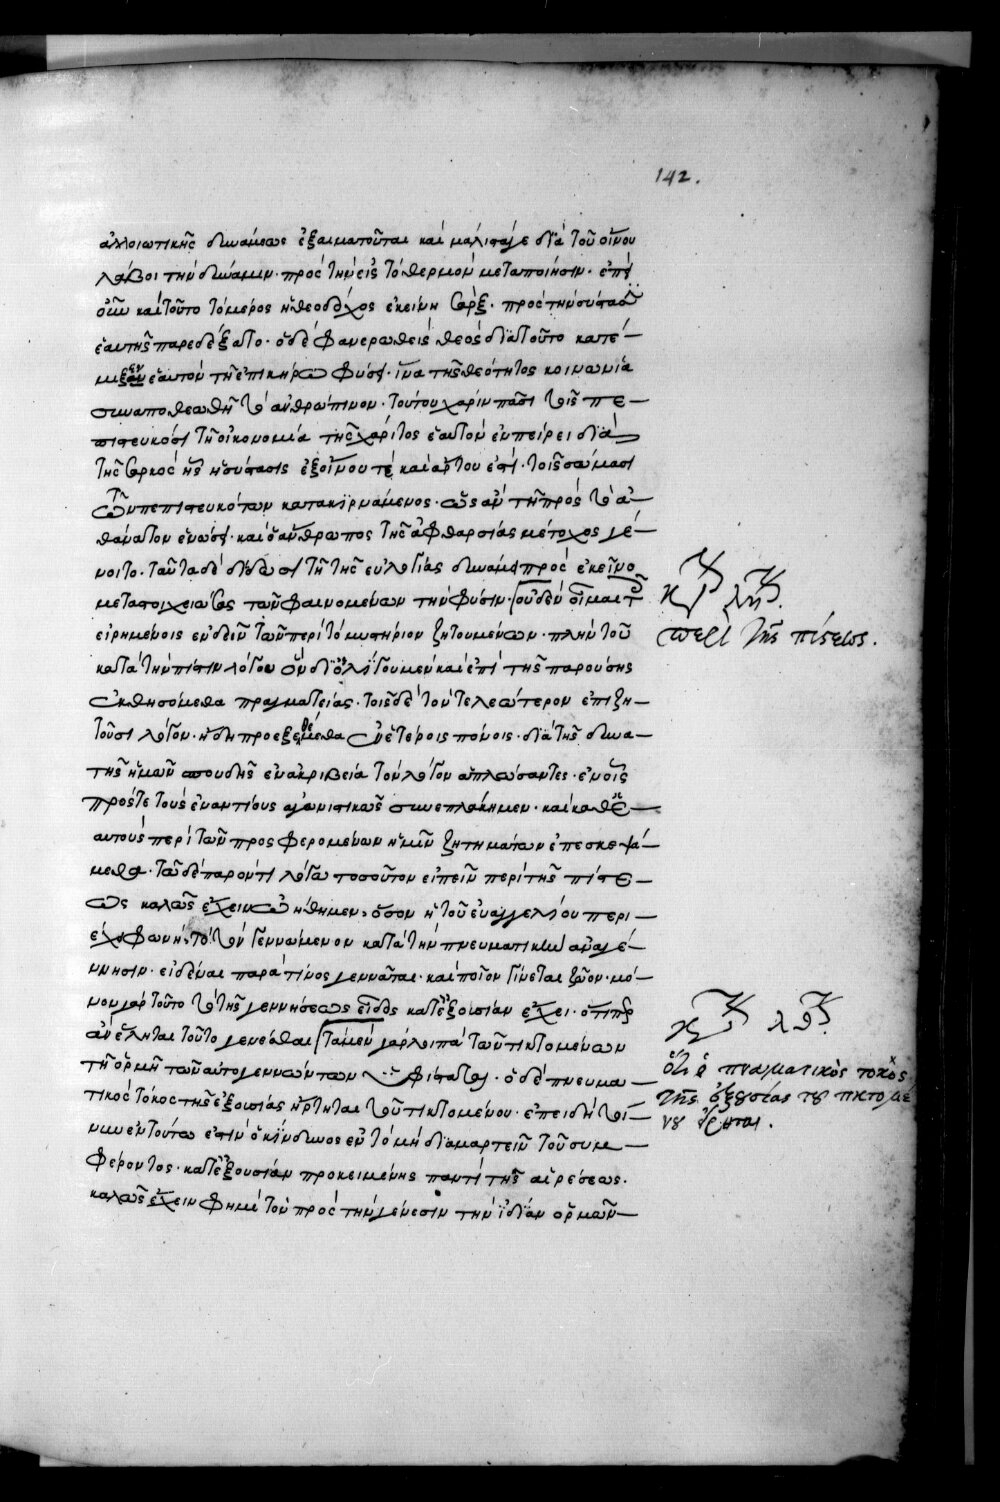 142.
ἀλλοιωτικῆς δυνάμεως ἐξαιματοῦται καὶ μάλιστά γε διὰ τοῦ οἴνου
λάβοι τὴν δύναμιν· πρὸς τὴν εἰς τὸ θερμὸν μεταποίησιν· ἐπεὶ
οὖν καὶ τοῦτο τὸ μέρος ἡ θεοδόχος ἐκείνη σὰρξ· πρὸς τὴν σύστασιν
ἑαυτῆς παρεδέξατο· ὁ δὲ φανερωθεὶς θεὸς διὰ τοῦτο κατέ-
μιξεν ἑαυτὸν τῇ ἐπικήρω φύσει· ἵνα τῆς θεότητος κοινωνία
συναποθεωθῇ τὸ ἀνθρώπινον· τούτου χάριν πᾶσι τοῖς πε-
πιστευκόσι τῇ οἰκονομία τῆς χάριτος ἑαυτὸν ἐνσπείρει διὰ
τῆς σαρκὸς ἧς ἡ σύστασις ἐξ οἴνου τὲ καὶ ἄρτου ἐστί· τοῖς σώμασι
τῶν πεπιστευκότων κατακιρνάμενος· ὡς ἂν τῇ πρὸς τὸ ἀ-
θάνατον ἑνώσει· καὶ ὁ ἄνθρωπος τῆς ἀφθαρσίας μέτοχος γέ-
νοιτο· ταῦτα δὲ δίδωσι τῇ τῆς εὐλογίας δυνάμει πρὸς ἐκεῖνο
μεταστοιχειώσας τῶν φαινομένων τὴν φύσιν· οὐδὲν οἶμαι τοῖς
εἰρημένοις ἐνδεῖν τῶν περὶ τὸ μυστήριον ζητουμένων· πλὴν τοῦ
κατὰ τὴν πίστιν λόγου ὃν δι' ὀλίγου μὲν καὶ ἐπὶ τῆς παρούσης
ἐκθησόμεθα πραγματείας· τοῖς δὲ τὸν τελεώτερον ἐπιζη-
τοῦσι λόγον· ἤδη προεξεθέμεθα ἐν ἑτέροις πόνοις· διὰ τῆς δυνα-
τῆς ἡμῶν σπουδῆς ἐν ἀκριβεία τὸν λόγον ἁπλώσαντες· ἐν οἷς
πρός τε τοὺς ἐναντίους ἀγωνιστικῶς συνεπλάκημεν· καὶ καθ' ἑ-
αυτοὺς περὶ τῶν προσφερομένων ἡμῖν ζητημάτων ἐπεσκεψά-
μεθα· τῶ δὲ παρόντι λόγω τοσοῦτον εἰπεῖν περὶ τῆς πίστε-
ως καλῶς ἔχειν ὠήθημεν, ὅσον ἡ τοῦ εὐαγγελίου περι-
έχει φωνή, τὸ τὸν γεννώμενον κατὰ τὴν πνευματικὴν ἀναγέ-
ννησιν· εἰδέναι παρὰ τίνος γεννᾶται· καὶ ποῖον γίνεται ζῶον· μό-
νον γὰρ τοῦτο τὸ τῆς γεννήσεως εἶδος κατ' ἐξουσίαν ἔχει· ὅτιπερ
ἂν ἕληται τοῦτο γενέσθαι τὰ μὲν γὰρ λοιπὰ τῶν τικτομένων
τῇ ὁρμῇ τῶν ἀπογεννώντων ὑφίσταται· ὁ δὲ πνευμα-
τικὸς τόκος τῆς ἐξουσίας ἤρτηται τοῦ τικτομένου· ἐπειδὴ τοί-
νυν ἐν τούτω ἐστὶν ὁ κίνδυνος ἐν τὸ μὴ διαμαρτεῖν τοῦ συμ-
φέροντος· κατ' ἐξουσίαν προκειμένης παντὶ τῆς αἱρέσεως·
καλῶς ἔχειν φημὶ τὸν πρὸς τὴν γένεσιν τὴν ἰδίαν ὁρμῶν-
κεφ λη.
περὶ τῆς πίστεως.
κεφ λθ.
ὅτι ὁ πνευματικὸς τόκος
τῆς ἐξουσίας τοῦ τικτομέ
νου ἤρτηται.